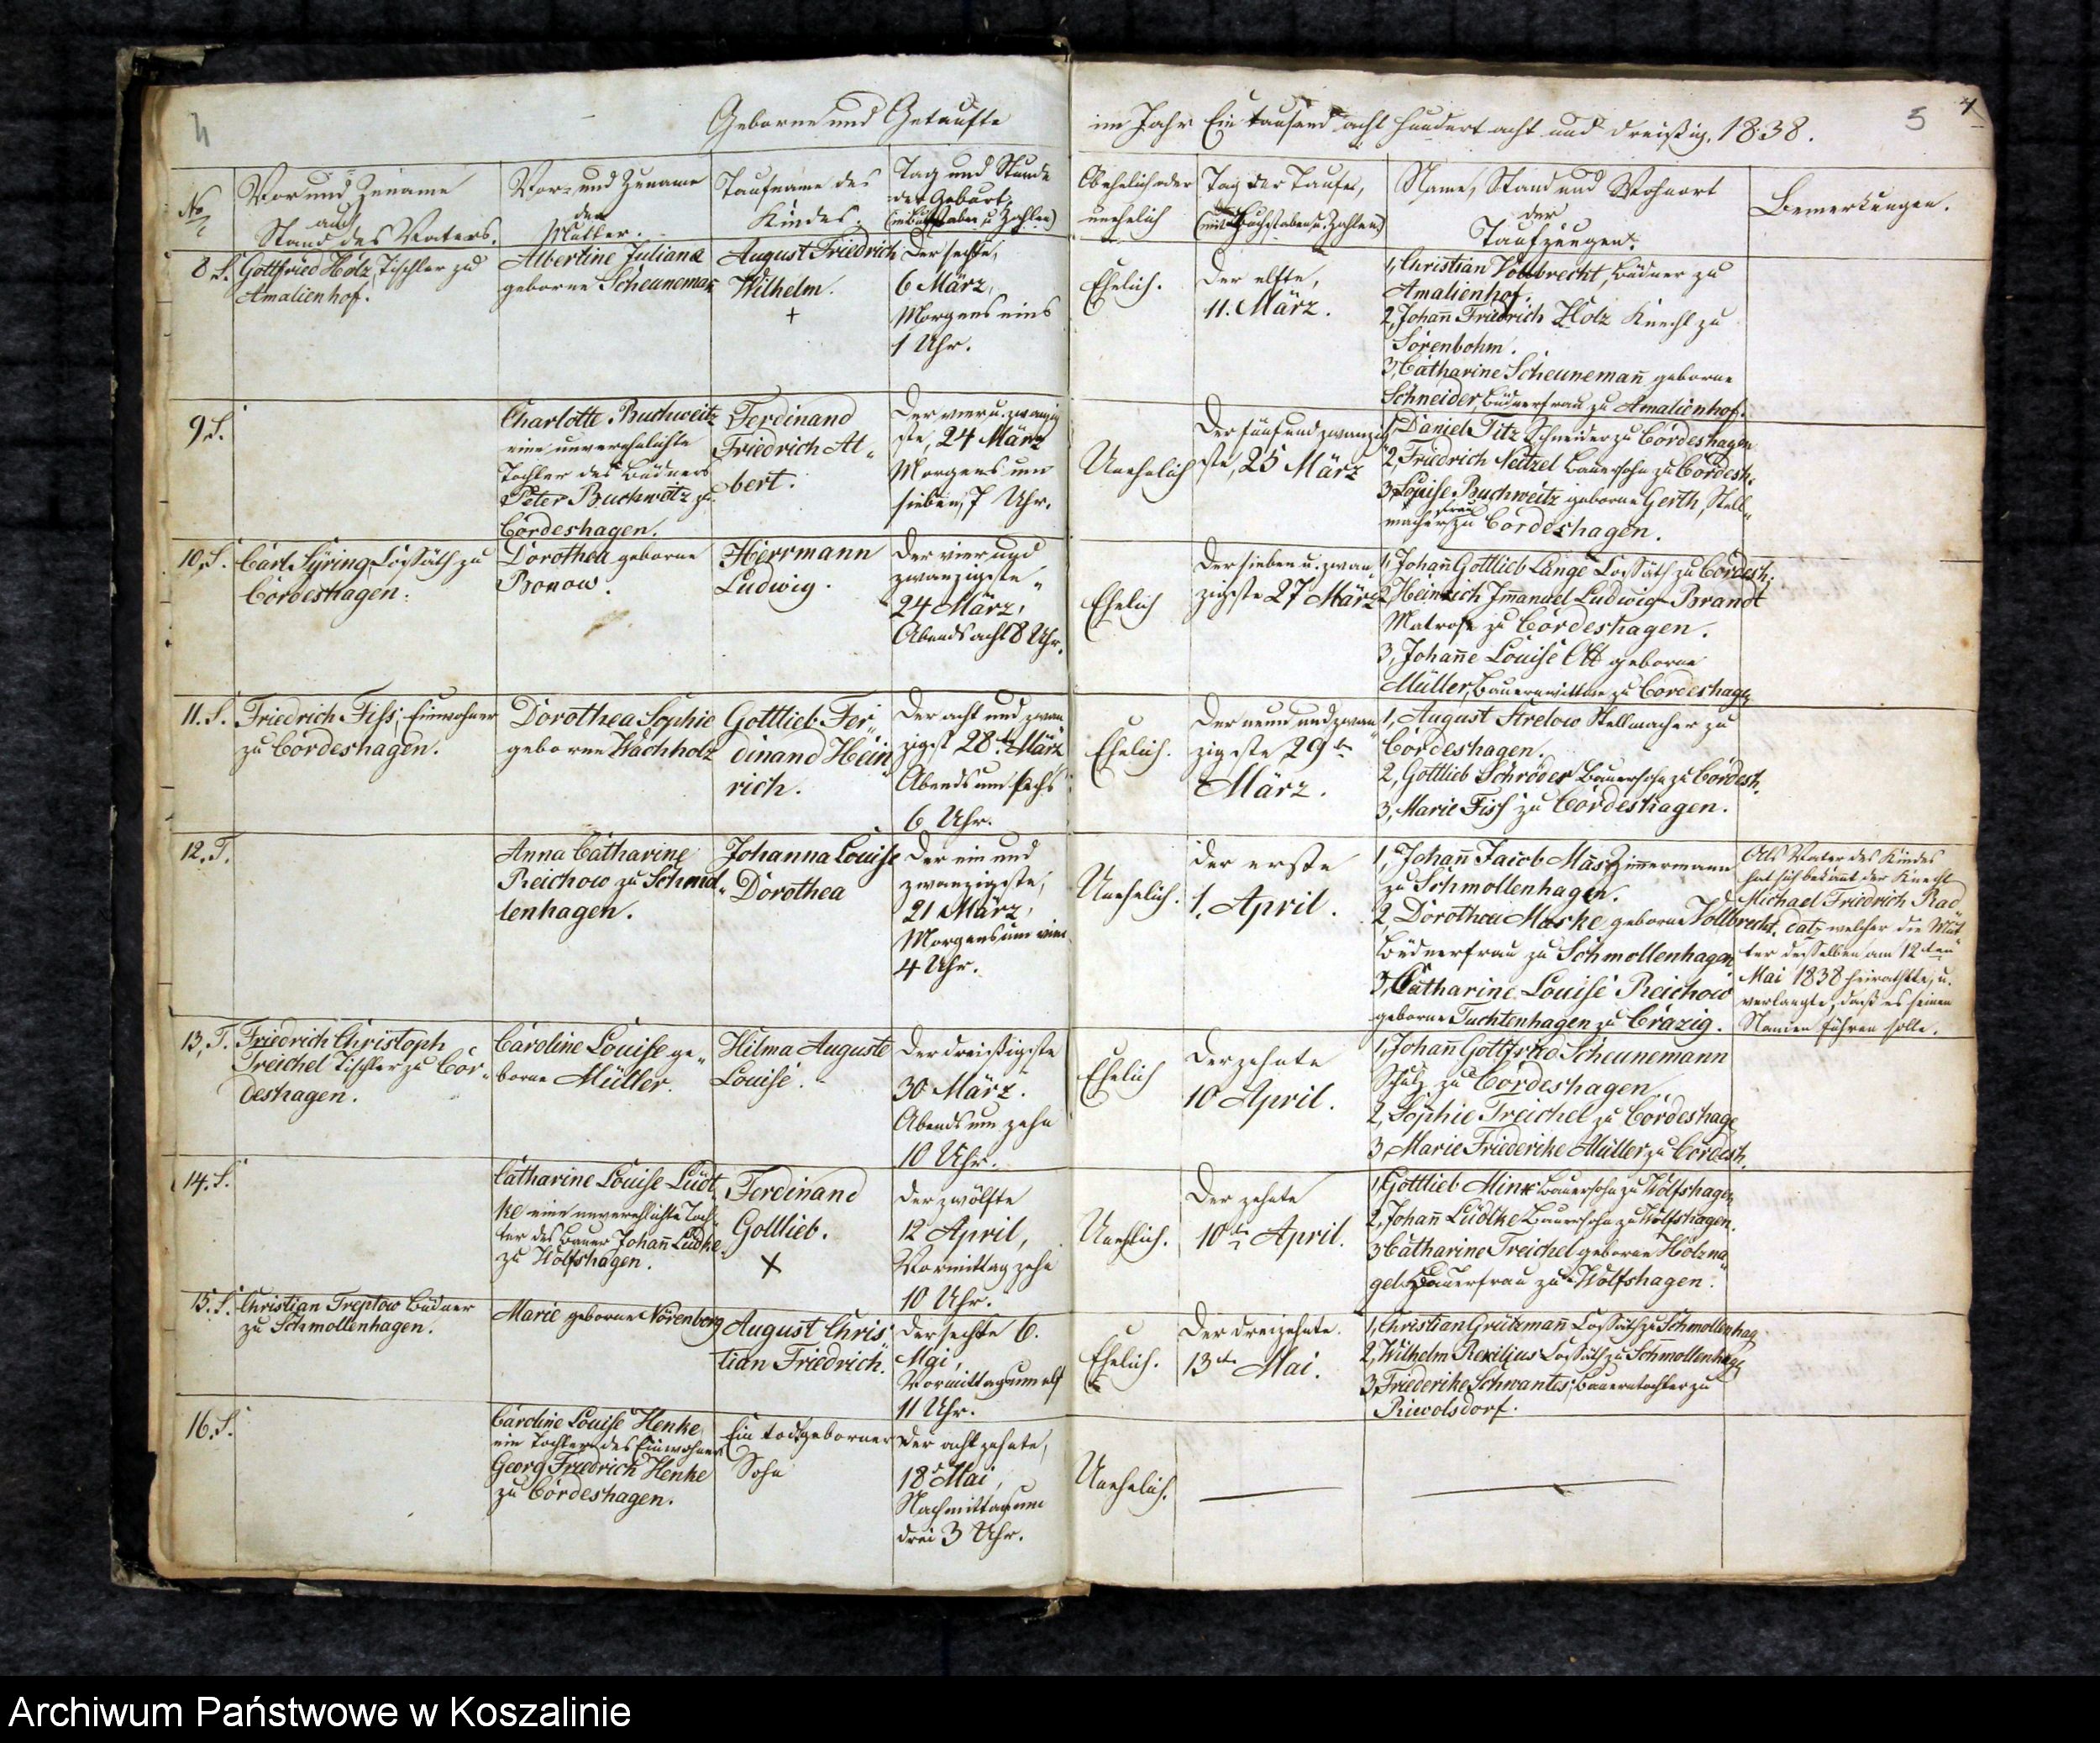 4
Geborne und Getaufte
im Jahr Ein tausend acht hundert acht und dreißig. 1838.
5
No
Vor und Zuname
und
Stand des Vaters.
Vor- und Zuname
der
Mutter.
Taufname des
Kindes.
Tag und Stunde
der Geburt,
(in Buchstaben u. Zahlen)
Ob ehelich oder
unehelich
Tag der Taufe,
(mit Buchstaben u. Zahlen)
Name, Stand und Wohnort
der
Taufzeugen.
Bemerkungen.
8 S.
Gottfried Holz, Tischler zu
Amalienhof.
Albertine Juliane
geborne Scheunemañ
August Friedrich
Wilhelm.
+
Der sechste,
6 März,
Morgens eins
1 Uhr.
Ehelich.
Der elfte,
11. März.
1, Christian Vollbrecht, Büdner zu
Amalienhof.
2, Johañ Friedrich Holz Knecht zu
Sorenbohm.
3, Catharine Scheunemañ geborne
Schneider, Büdnerfrau zu Amalienhof.
9 S.
Charlotte Buchweitz
eine unverehelichte
Tochter des Büdners
Peter Buchweitz zu
Cördeshagen.
Ferdinand
Friedrich Al-
bert.
Der vier u. zwanzig
ste, 24 März
Morgens um
sieben, 7 Uhr.
Unehelich
Der fünf und zwanzig
ste, 25 März
1, Daniel Titz Schneider zu Cördeshagen
2, Friedrich Neitzel Bauersohn zu Cördesh.
3, Louise Buchweitz geborne Gerth, Stell-
macherfrau zu Cördeshagen.
10, S.
Carl Syring, Coßäth zu
Cördeshagen.
Dorothea geborne
Bonow.
Herrmann
Ludwig.
Der vier und
zwanzigste
24 März,
Abends acht 8 Uhr.
Ehelich
Der sieben u. zwan-
zigste 27 März
1, Johañ Gottlieb Lange Coßäth zu Cördesh.
2, Heinrich Imanuel Ludwig Brandt
Matrose zu Cördeshagen.
3, Johañe Louise Ott geborne
Müller, Bauernwittwe zu Cördeshagen
11. S.
Friedrich Fiss, Einwohner
zu Cördeshagen.
Dorothea Sophie
geborne Wachholz
Gottlieb Fer-
dinand Hein
rich.
Der acht und zwan
zigst 28te März
Abends um sechs
6 Uhr.
Ehelich.
Der neun und zwan-
zigste 29te
März.
1, August Strelow Stellmacher zu
Cördeshagen.
2, Gottlieb Schröder Bauersohn zu Cördesh.
3, Marie Fiss zu Cördeshagen.
12. T.
Anna Catharine
Reichow zu Schmol-
lenhagen.
Johanna Louise
Dorothea
Der ein und
zwanzigste,
21 März,
Morgens um vier
4 Uhr.
Unehelich.
Der erste
1. April.
1, Johañ Jacob Maske Zimmermann
zu Schmollenhagen.
2, Dorothea Maske geborne Vollbrecht,
Büdnerfrau zu Schmollenhagen
3, Catharine Louise Reichow
geborne Tuchtenhagen zu Crazig.
Als Vater des Kindes
hat sich bekañt der Knecht
Michael Friedrich Rad
datz welcher die Mut
ter desselben am 12ten
Mai 1838 heirathete, u.
verlangte, daß es seinen
Namen führen solle.
13, T.
Friedrich Christoph
Treichel Tischler zu Cör-
deshagen.
Caroline Louise ge-
borne Müller.
Hilma Auguste
Louise.
Der dreißigste
30 März.
Abends um zehn
10 Uhr.
Ehelich
Der zehnte
10 April.
1, Johañ Gottfried Scheunemann
Schulz zu Cördeshagen
2, Sophie Treichel zu Cördeshage
3 Marie Friederike Müller zu Cördesh.
14. S.
Catharine Louise Lüdt
ke eine unverehlichte Toch-
ter des Bauer Johañ Lüdke
zu Wolfshagen.
Ferdinand
Gottlieb.
X
Der zwölfte
12 April,
Vormittag zehn
10 Uhr.
Unehelich.
Der zehnte
10te April.
1, Gottlieb Mink Bauersohn zu Wolfshagen
2, Johañ Lüdtke Bauersohn zu Wolfshagen.
3 Catharine Treichel geborne Holzna-
gel Bauerfrau zu Wolfshagen.
15. S.
Christian Treptow Büdner
zu Schmollenhagen.
Marie geborne Nörenberg
August Chris-
tian Friedrich.
Der sechste 6.
Mai,
Vormittags um elf
11 Uhr.
Ehelich.
Der dreizehnte.
13te Mai.
1, Christian Grützmañ Coßäth zu Schmollenhag
2, Wilhelm Rexilius Coßäth zu Schmollenhagen
3, Friederike Schwantes, Bauerntochter zu
Riewolsdorf.
16. S.
Caroline Louise Henke
ein Tochter des Einwohner
Georg Friedrich Henke
zu Cördeshagen.
Ein todtgeborner
Sohn
Der acht zehnte,
18 Mai,
Nachmittags um
drei 3 Uhr.
Unehelich.
Archiwum Państwowe w Koszalinie